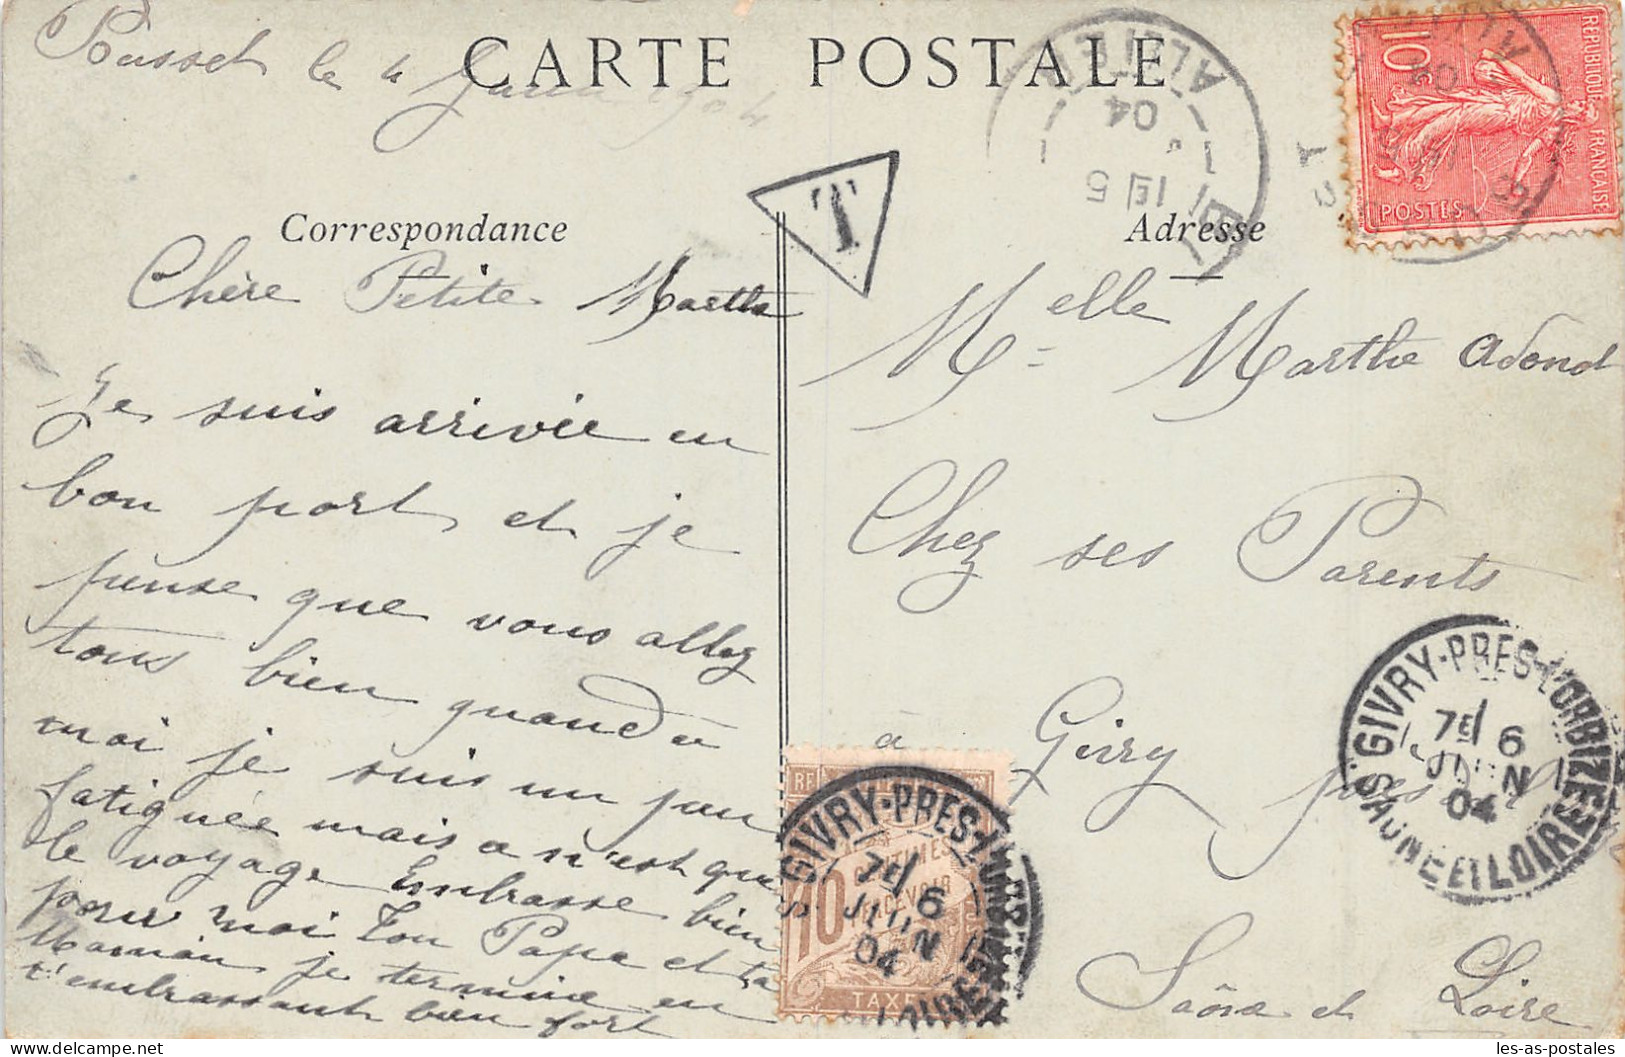 Busset le 4 Juin 1904
CARTE POSTALE
Correspondance
Adresse
T
Chère Petite Marthe
Je suis arrivée en
bon port et je
pense que vous allez
tous bien quand à
moi je suis un peu
fatiguée mais ce n'est que
le voyage Embrasse bien
pour moi Ton Papa et ta
Maman je termine en
t'embrassant bien fort
Melle Marthe Adond
Chez ses Parents
à Givry près
Saône et Loire
REPUBLIQUE FRANÇAISE
10c
POSTES
ALLIER
1E 5
04
GIVRY-PRES-L'ORBIZE
7E 6
JUIN
04
SAONE ET LOIRE
RF
10 CENTIMES
A PERCEVOIR
TAXE
GIVRY-PRES-L'ORBIZE
7E 6
JUIN
04
les-as-postales.com